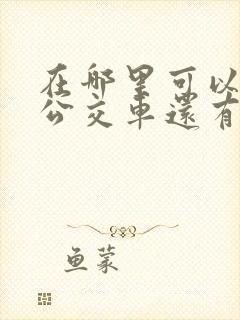 在哪里可以
公交車還有
鱼蒙